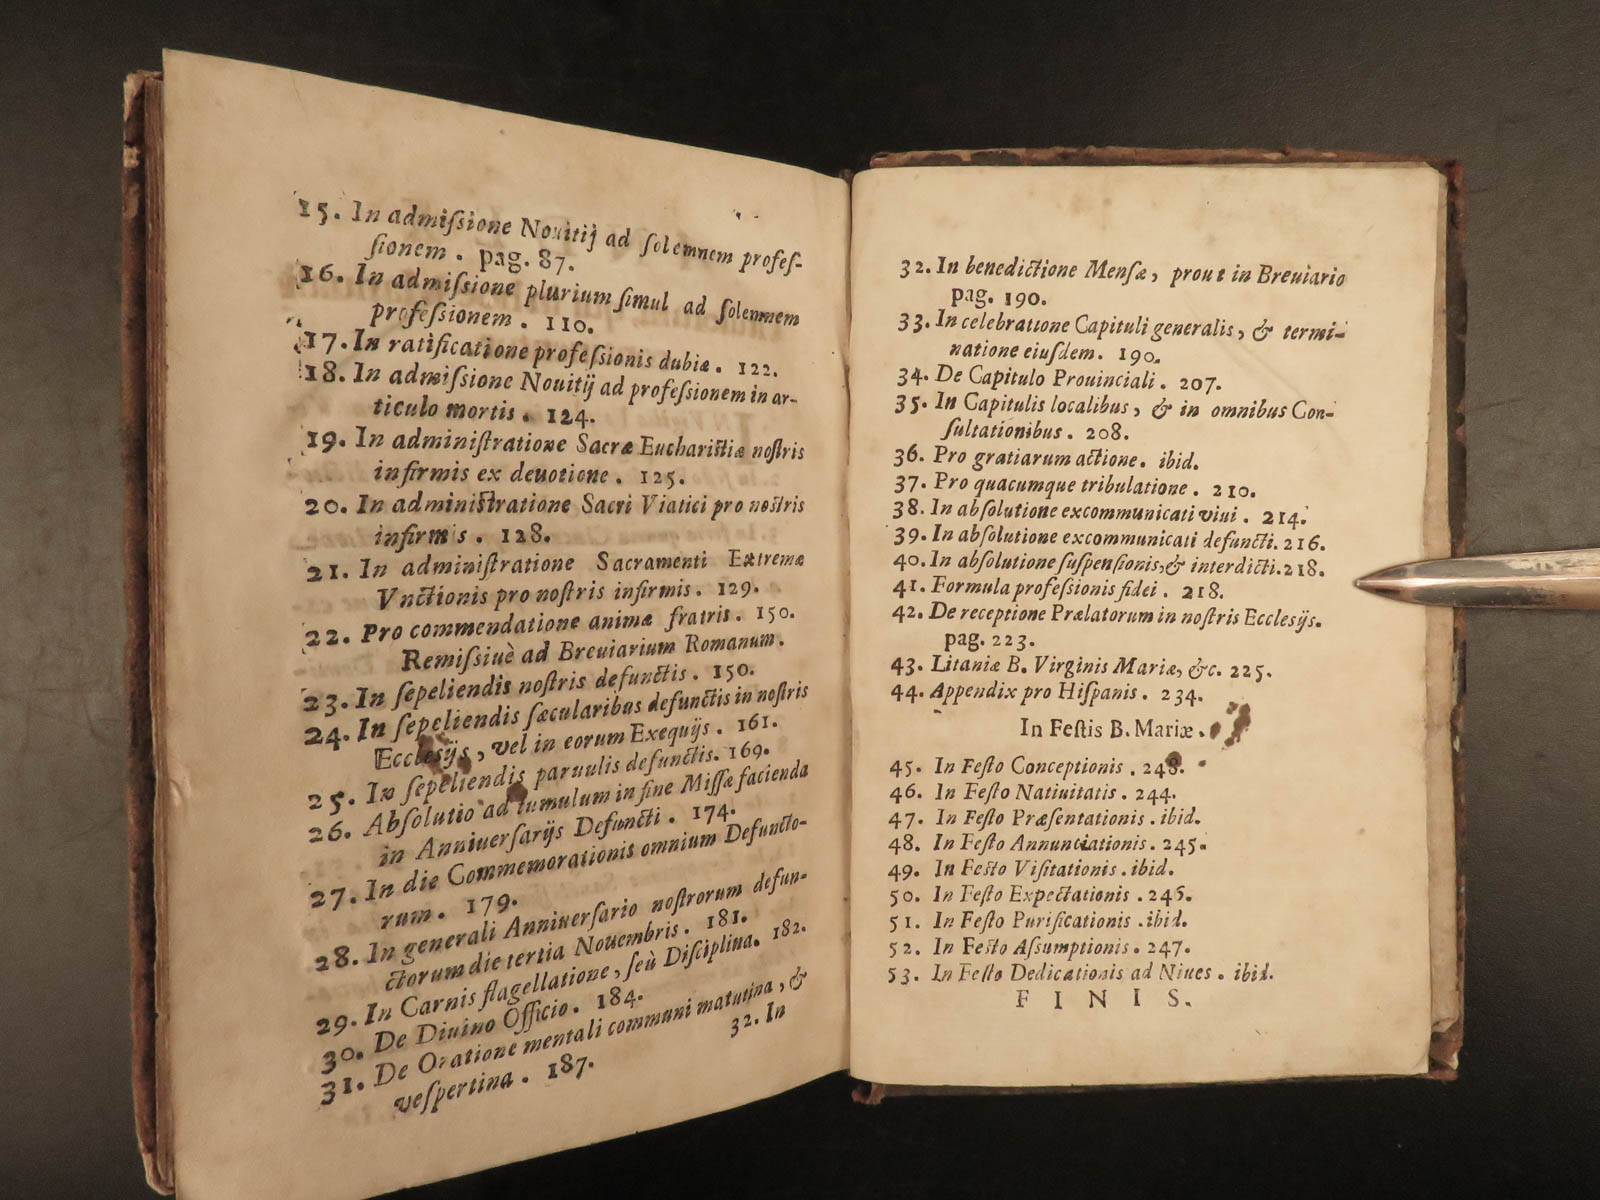 15. In admiſsione Nouitij ad ſolemnem profeſ-
ſionem. pag. 87.
16. In admiſsione plurium ſimul ad ſolemnem
profeſsionem. 110.
17. In ratificatione profeſsionis dubiæ. 122.
18. In admiſsione Nouitij ad profeſsionem in ar-
ticulo mortis. 124.
19. In adminiſtratione Sacræ Euchariſtiæ noſtris
infirmis ex deuotione. 125.
20. In adminiſtratione Sacri Viatici pro noſtris
infirmis. 128.
21. In adminiſtratione Sacramenti Extremæ
Vnctionis pro noſtris infirmis. 129.
22. Pro commendatione animæ fratris. 150.
Remiſsiuè ad Breuiarium Romanum.
23. In ſepeliendis noſtris defunctis. 150.
24. In ſepeliendis ſæcularibus defunctis in noſtris
Eccleſijs, vel in eorum Exequijs. 161.
25. In ſepeliendis paruulis defunctis. 169.
26. Abſolutio ad tumulum in fine Miſſæ facienda
in Anniuerſarijs Defuncti. 174.
27. In die Commemorationis omnium Defuncto-
rum. 179.
28. In generali Anniuerſario noſtrorum defun-
ctorum die tertia Nouembris. 181.
29. In Carnis flagellatione, ſeù Diſciplina. 182.
30. De Diuino Officio. 184.
31. De Oratione mentali communi matutina, &
veſpertina. 187.
32. In
32. In benedictione Menſæ, prout in Breuiario
pag. 190.
33. In celebratione Capituli generalis, & termi-
natione eiuſdem. 190.
34. De Capitulo Prouinciali. 207.
35. In Capitulis localibus, & in omnibus Con-
ſultationibus. 208.
36. Pro gratiarum actione. ibid.
37. Pro quacumque tribulatione. 210.
38. In abſolutione excommunicati viui. 214.
39. In abſolutione excommunicati defuncti. 216.
40. In abſolutione ſuſpenſionis, & interdicti. 218.
41. Formula profeſsionis fidei. 218.
42. De receptione Prælatorum in noſtris Eccleſijs.
pag. 223.
43. Litaniæ B. Virginis Mariæ, &c. 225.
44. Appendix pro Hiſpanis. 234.
In Feſtis B. Mariæ.
45. In Feſto Conceptionis. 248.
46. In Feſto Natiuitatis. 244.
47. In Feſto Præſentationis. ibid.
48. In Feſto Annunciationis. 245.
49. In Feſto Viſitationis. ibid.
50. In Feſto Expectationis. 246.
51. In Feſto Purificationis. ibid.
52. In Feſto Aſsumptionis. 247.
53. In Feſto Dedicationis ad Niues. ibid.
FINIS.